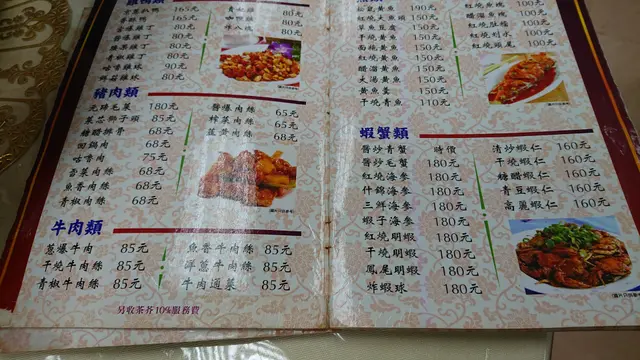 165元
鴨 165元
80元
雞丁 80元
雞丁 80元
青椒雞丁 80元
咕咾雞 80元
鮮菇雞球 80元
青椒雞 80元
咖哩雞 80元
80元
豬肉類
元蹄毛菜 180元
菜芯獅子頭 85元
糖醋排骨 68元
回鍋肉 68元
咕咾肉 75元
雪菜肉絲 68元
魚香肉絲 68元
青椒肉絲 68元
醬爆肉絲 65元
榨菜肉絲 68元
韮黃肉絲 68元
(圖片只供參考)
牛肉類
蔥爆牛肉 85元
干燒牛肉絲 85元
青椒牛肉絲 85元
魚香牛肉絲 85元
洋蔥牛肉絲 85元
牛肉通菜 85元
另收茶芥10%服務費
黃魚 190元
紅燒大魚頭 150元
150元
干燒黃魚 150元
紅燒黃魚 150元
醋溜黃魚 150元
大湯黃魚 150元
黃魚羹 150元
干燒青魚 110元
紅燒魚塊 100元
醋溜魚塊 100元
紅燒肚襠 100元
紅燒划水 100元
紅燒頭尾 100元
蝦蟹類
醬炒青蟹 時價
醬炒毛蟹 180元
紅燒海參 180元
什錦海參 180元
三鮮海參 180元
蝦子海參 180元
紅燒明蝦 180元
干燒明蝦 180元
鳳尾明蝦 180元
炸蝦球 180元
清炒蝦仁 160元
干燒蝦仁 160元
糖醋蝦仁 160元
青豆蝦仁 160元
高麗蝦仁 160元
(圖片只供參考)